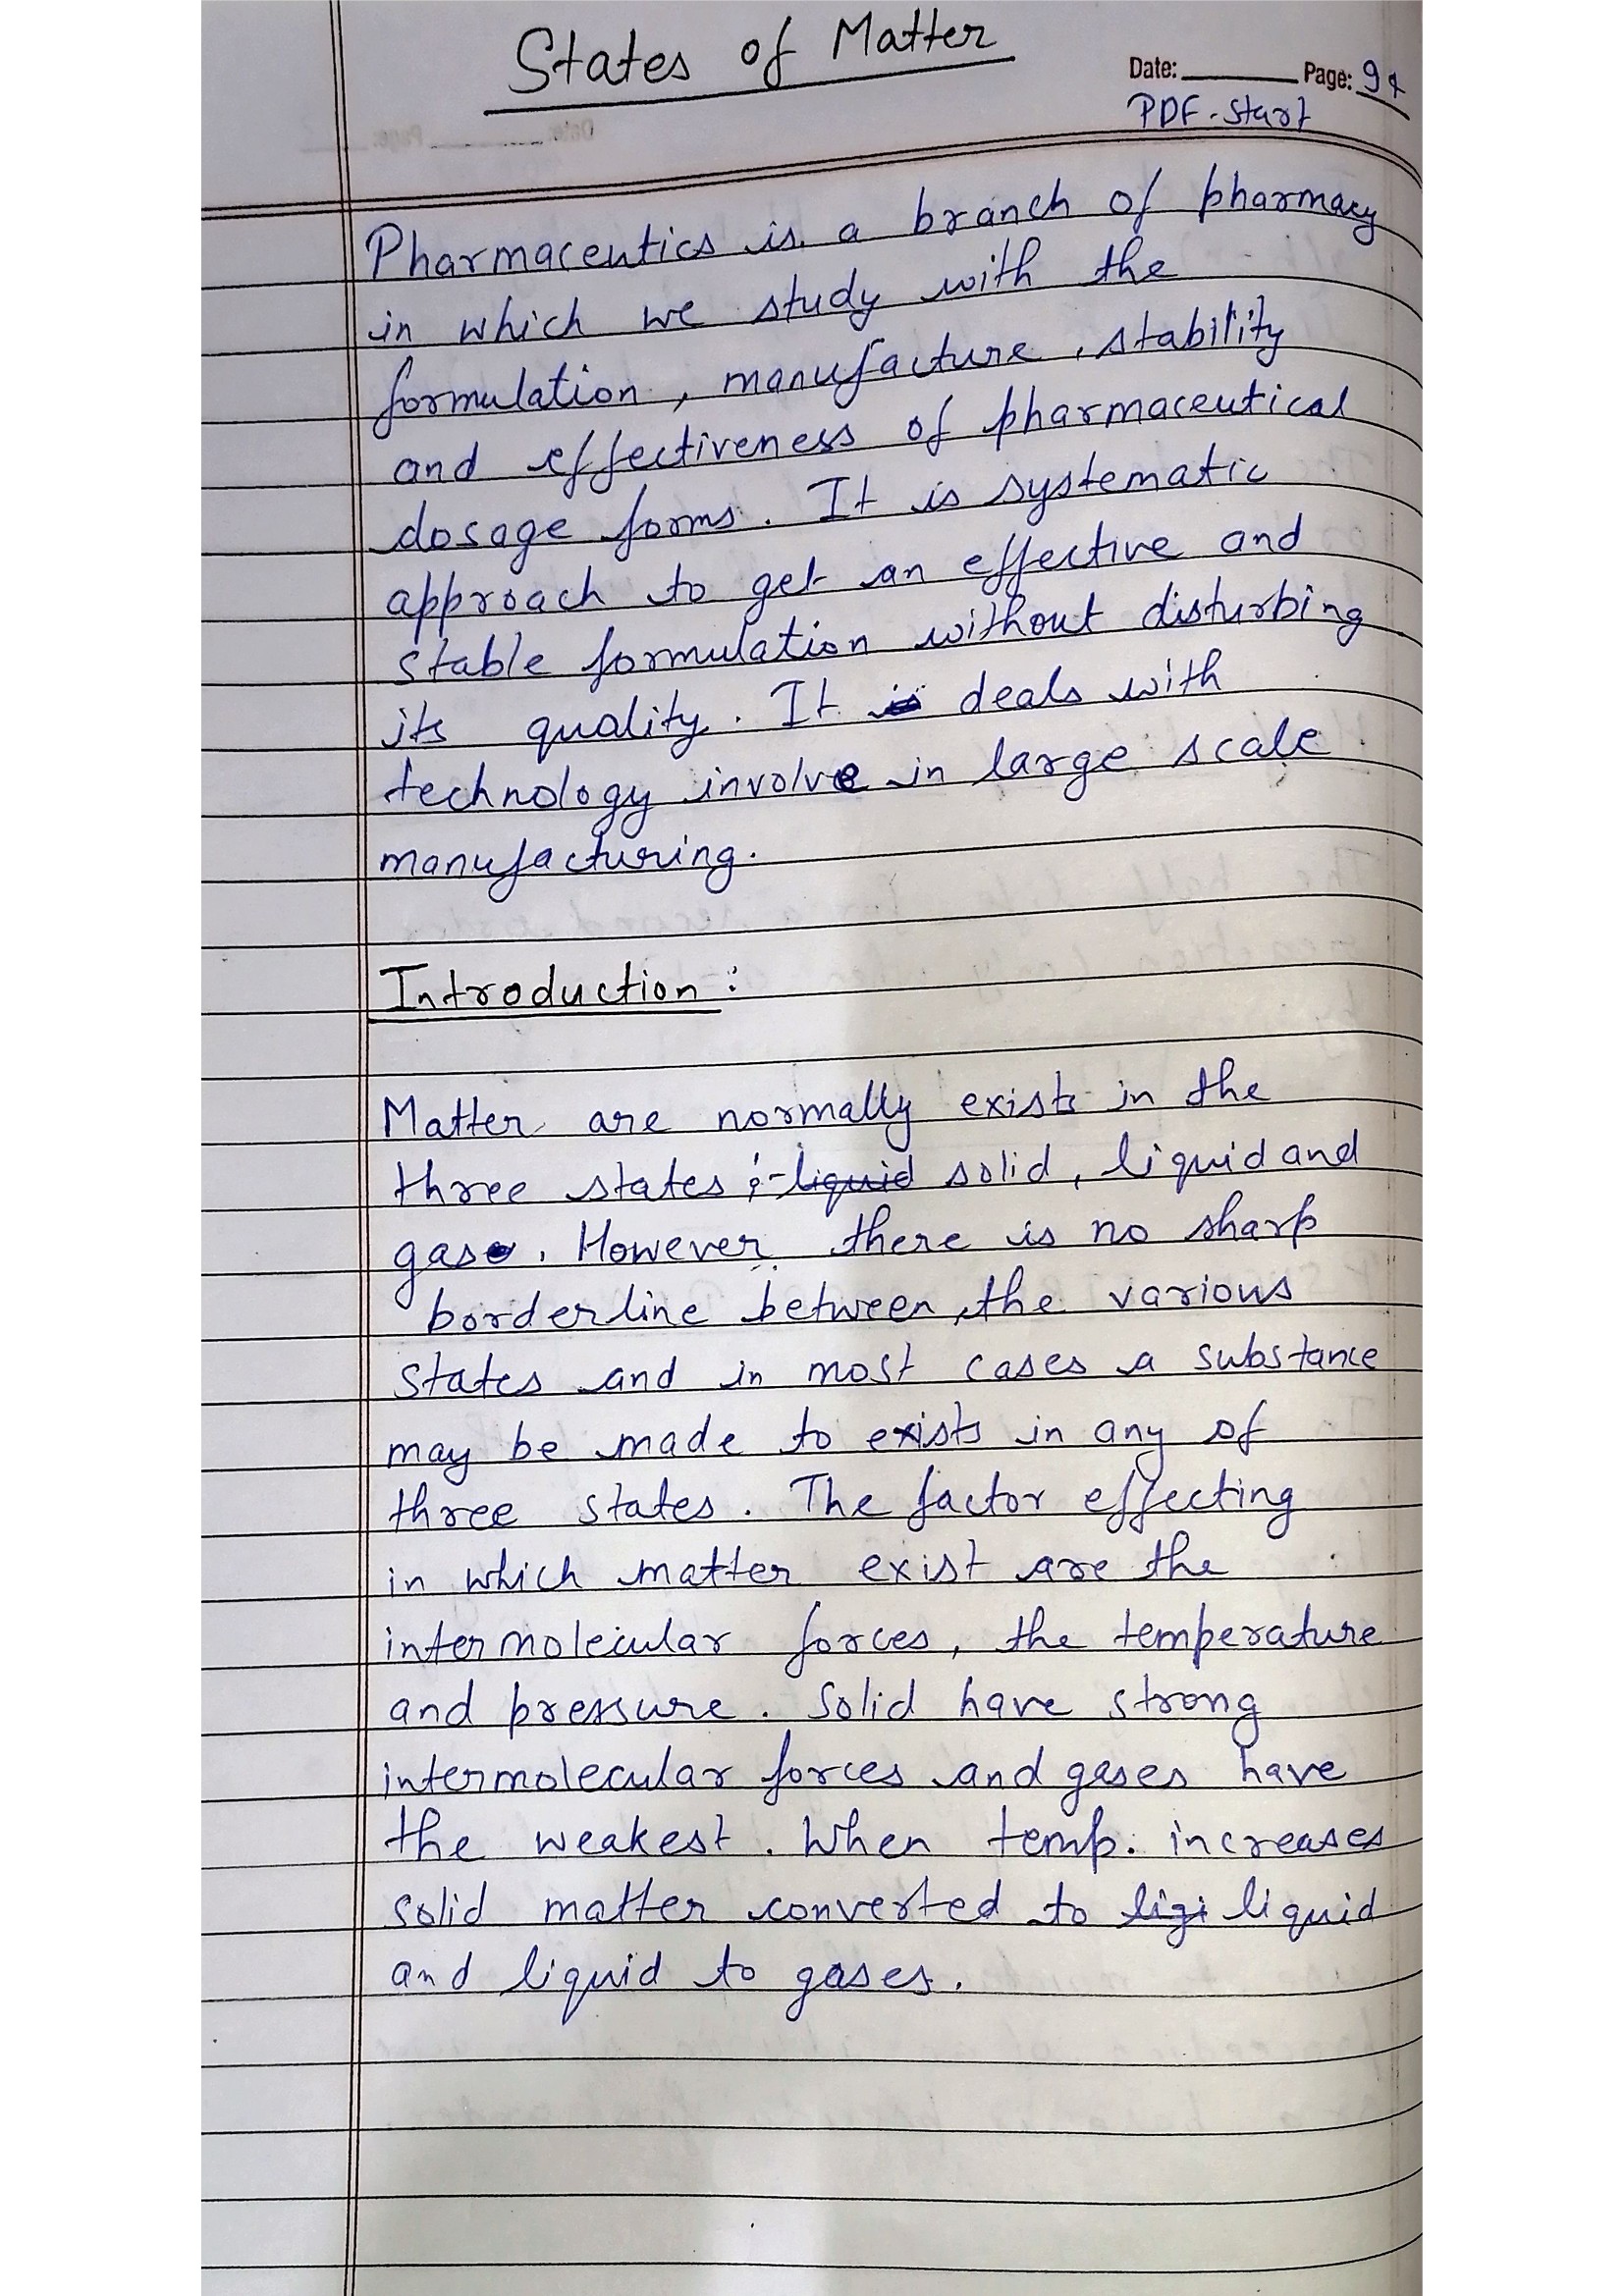 States of Matter
Date: Page: 9
PDF-Start
Pharmaceutics is a branch of pharmacy
in which we study with the
formulation, manufacture, stability
and effectiveness of pharmaceutical
dosage forms. It is systematic
approach to get an effective and
stable formulation without disturbing
its quality. It is deals with
technology involve in large scale
manufacturing.
Introduction :
Matter are normally exists in the
three states :- liquid solid, liquid and
gas. However there is no sharp
borderline between the various
states and in most cases a substance
may be made to exists in any of
three states. The factor effecting
in which matter exist are the
intermolecular forces, the temperature
and pressure. Solid have strong
intermolecular forces and gases have
the weakest. When temp. increases
solid matter converted to liqi liquid
and liquid to gases.